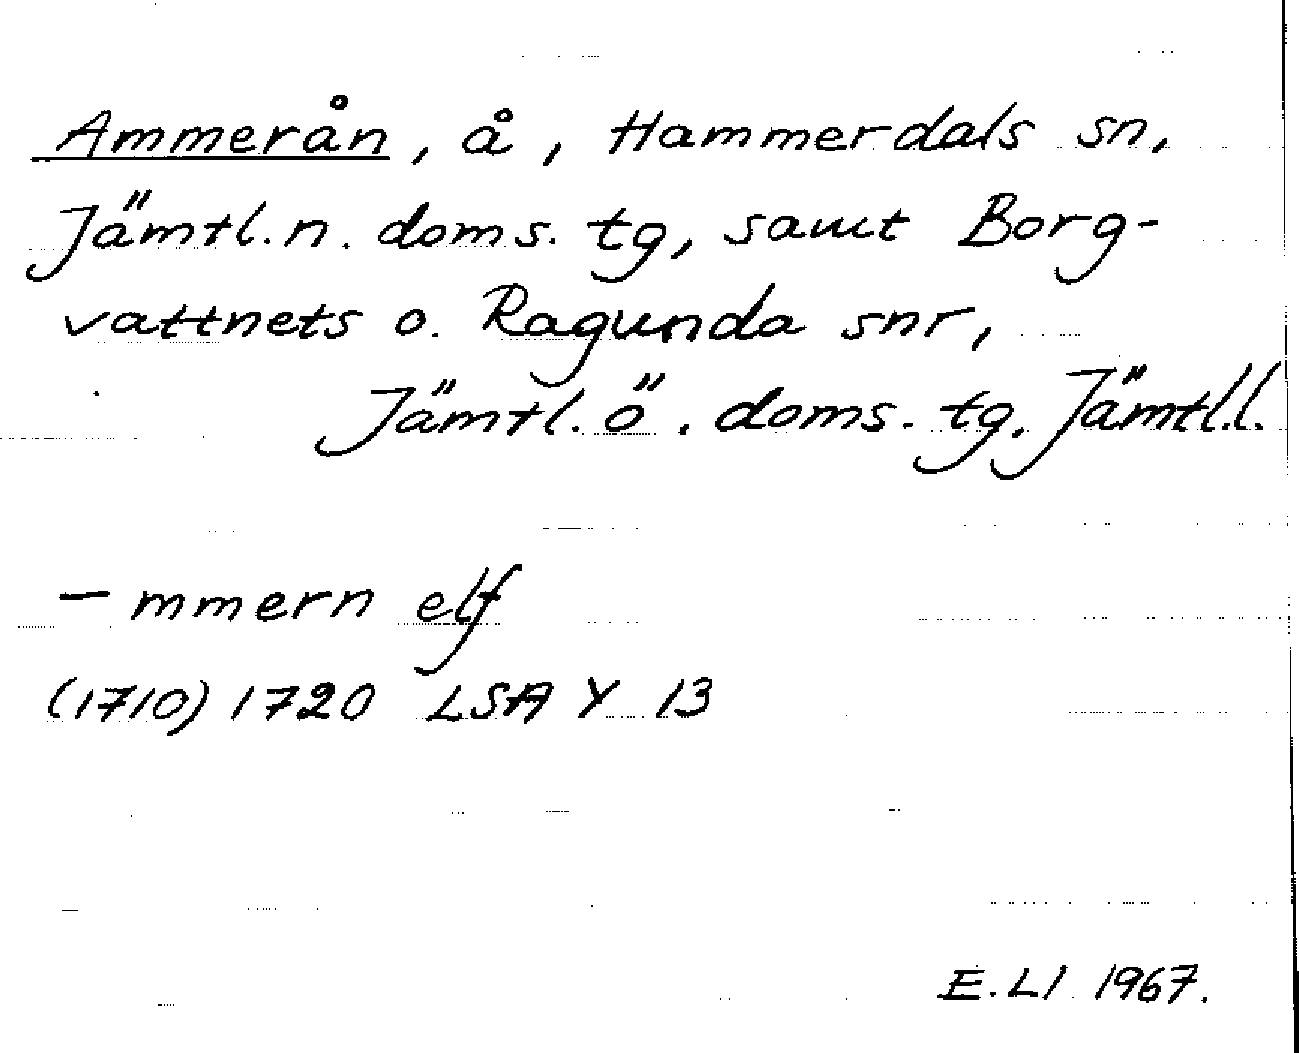 Ammerån, å, Hammerdals sn,
Jämtl. n. doms. tg, samt Borg-
vattnets o. Ragunda snr,
Jämtl. ö. doms. tg. Jämtl.l.
— mmern elf
(1710) 1720 LSA Y 13
E. Ll 1967.